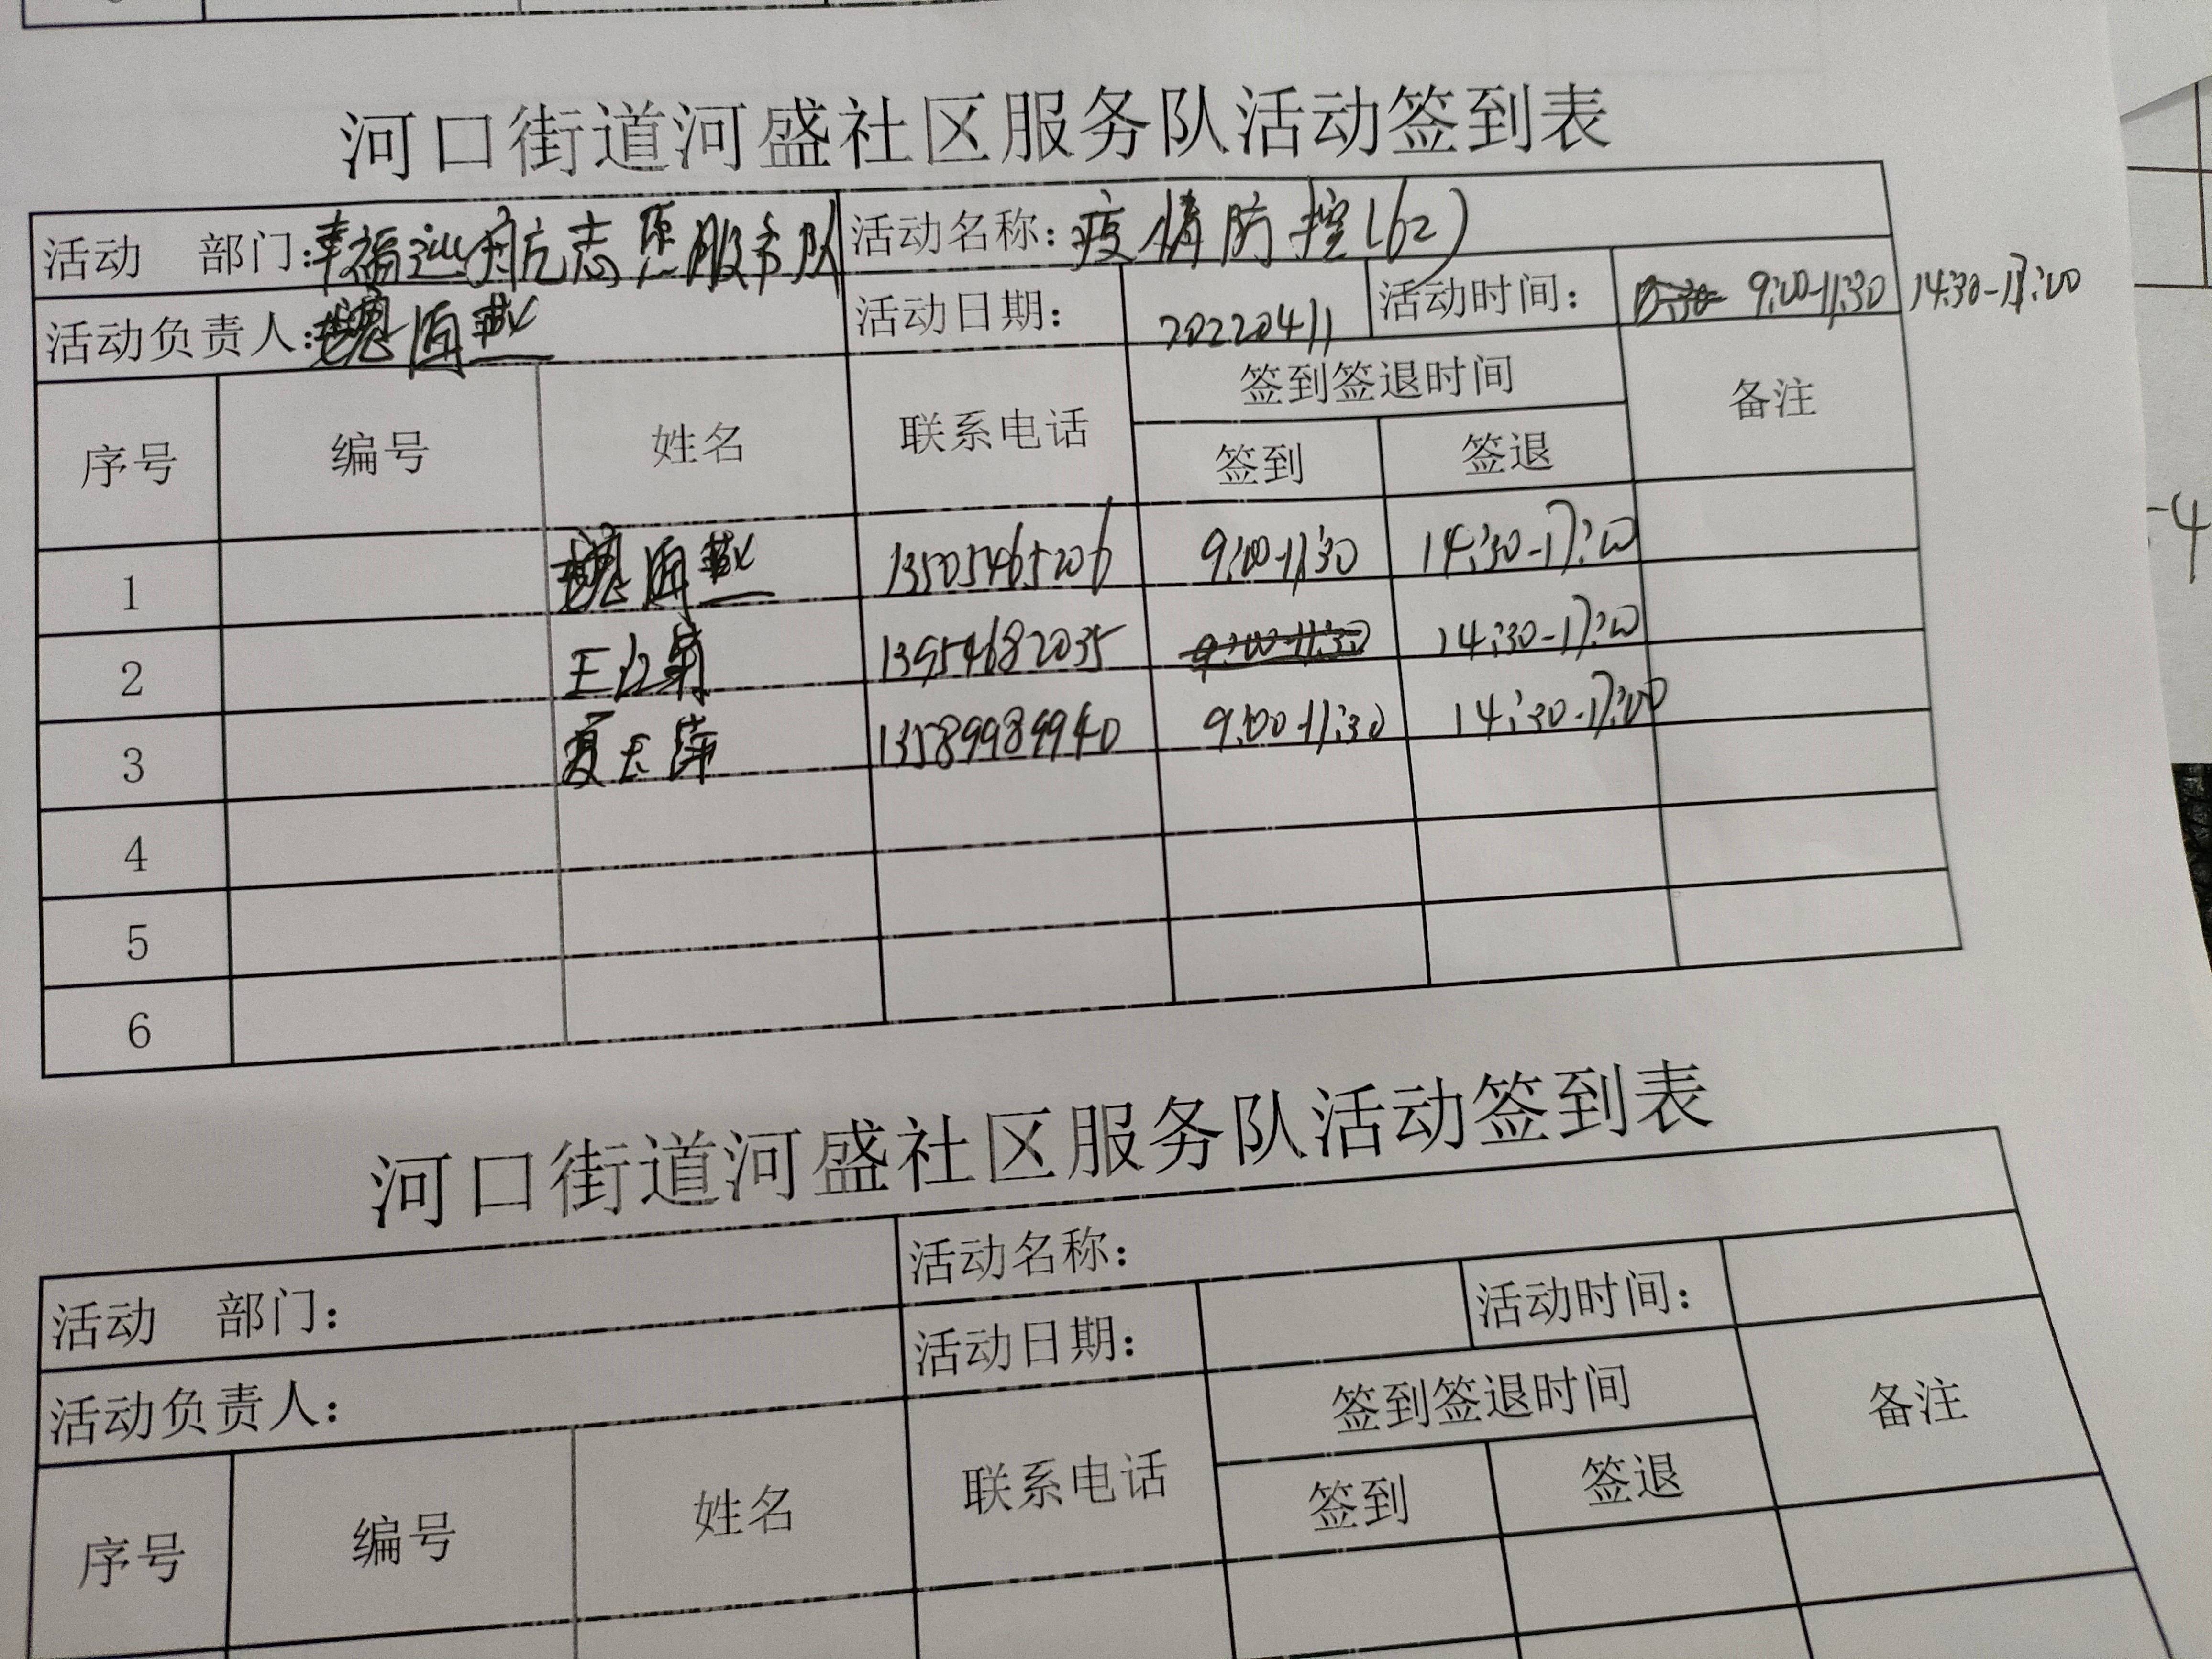 河口街道河盛社区服务队活动签到表
活动 部门:幸福巡航志愿服务队 活动名称:疫情防控(62)
活动负责人: 活动日期: 20220411 活动时间: 9:00-11:30 14:30-17:00
序号 编号 姓名 联系电话 签到签退时间 备注
签到 签退
1 13505465206 9:00-11:30 14:30-17:00
2 王红菊 13954682035 9:00-11:30 14:30-17:00
3 夏玉萍 13589989940 9:00-11:30 14:30-17:00
4
5
6
河口街道河盛社区服务队活动签到表
活动 部门: 活动名称:
活动负责人: 活动日期: 活动时间:
序号 编号 姓名 联系电话 签到签退时间 备注
签到 签退